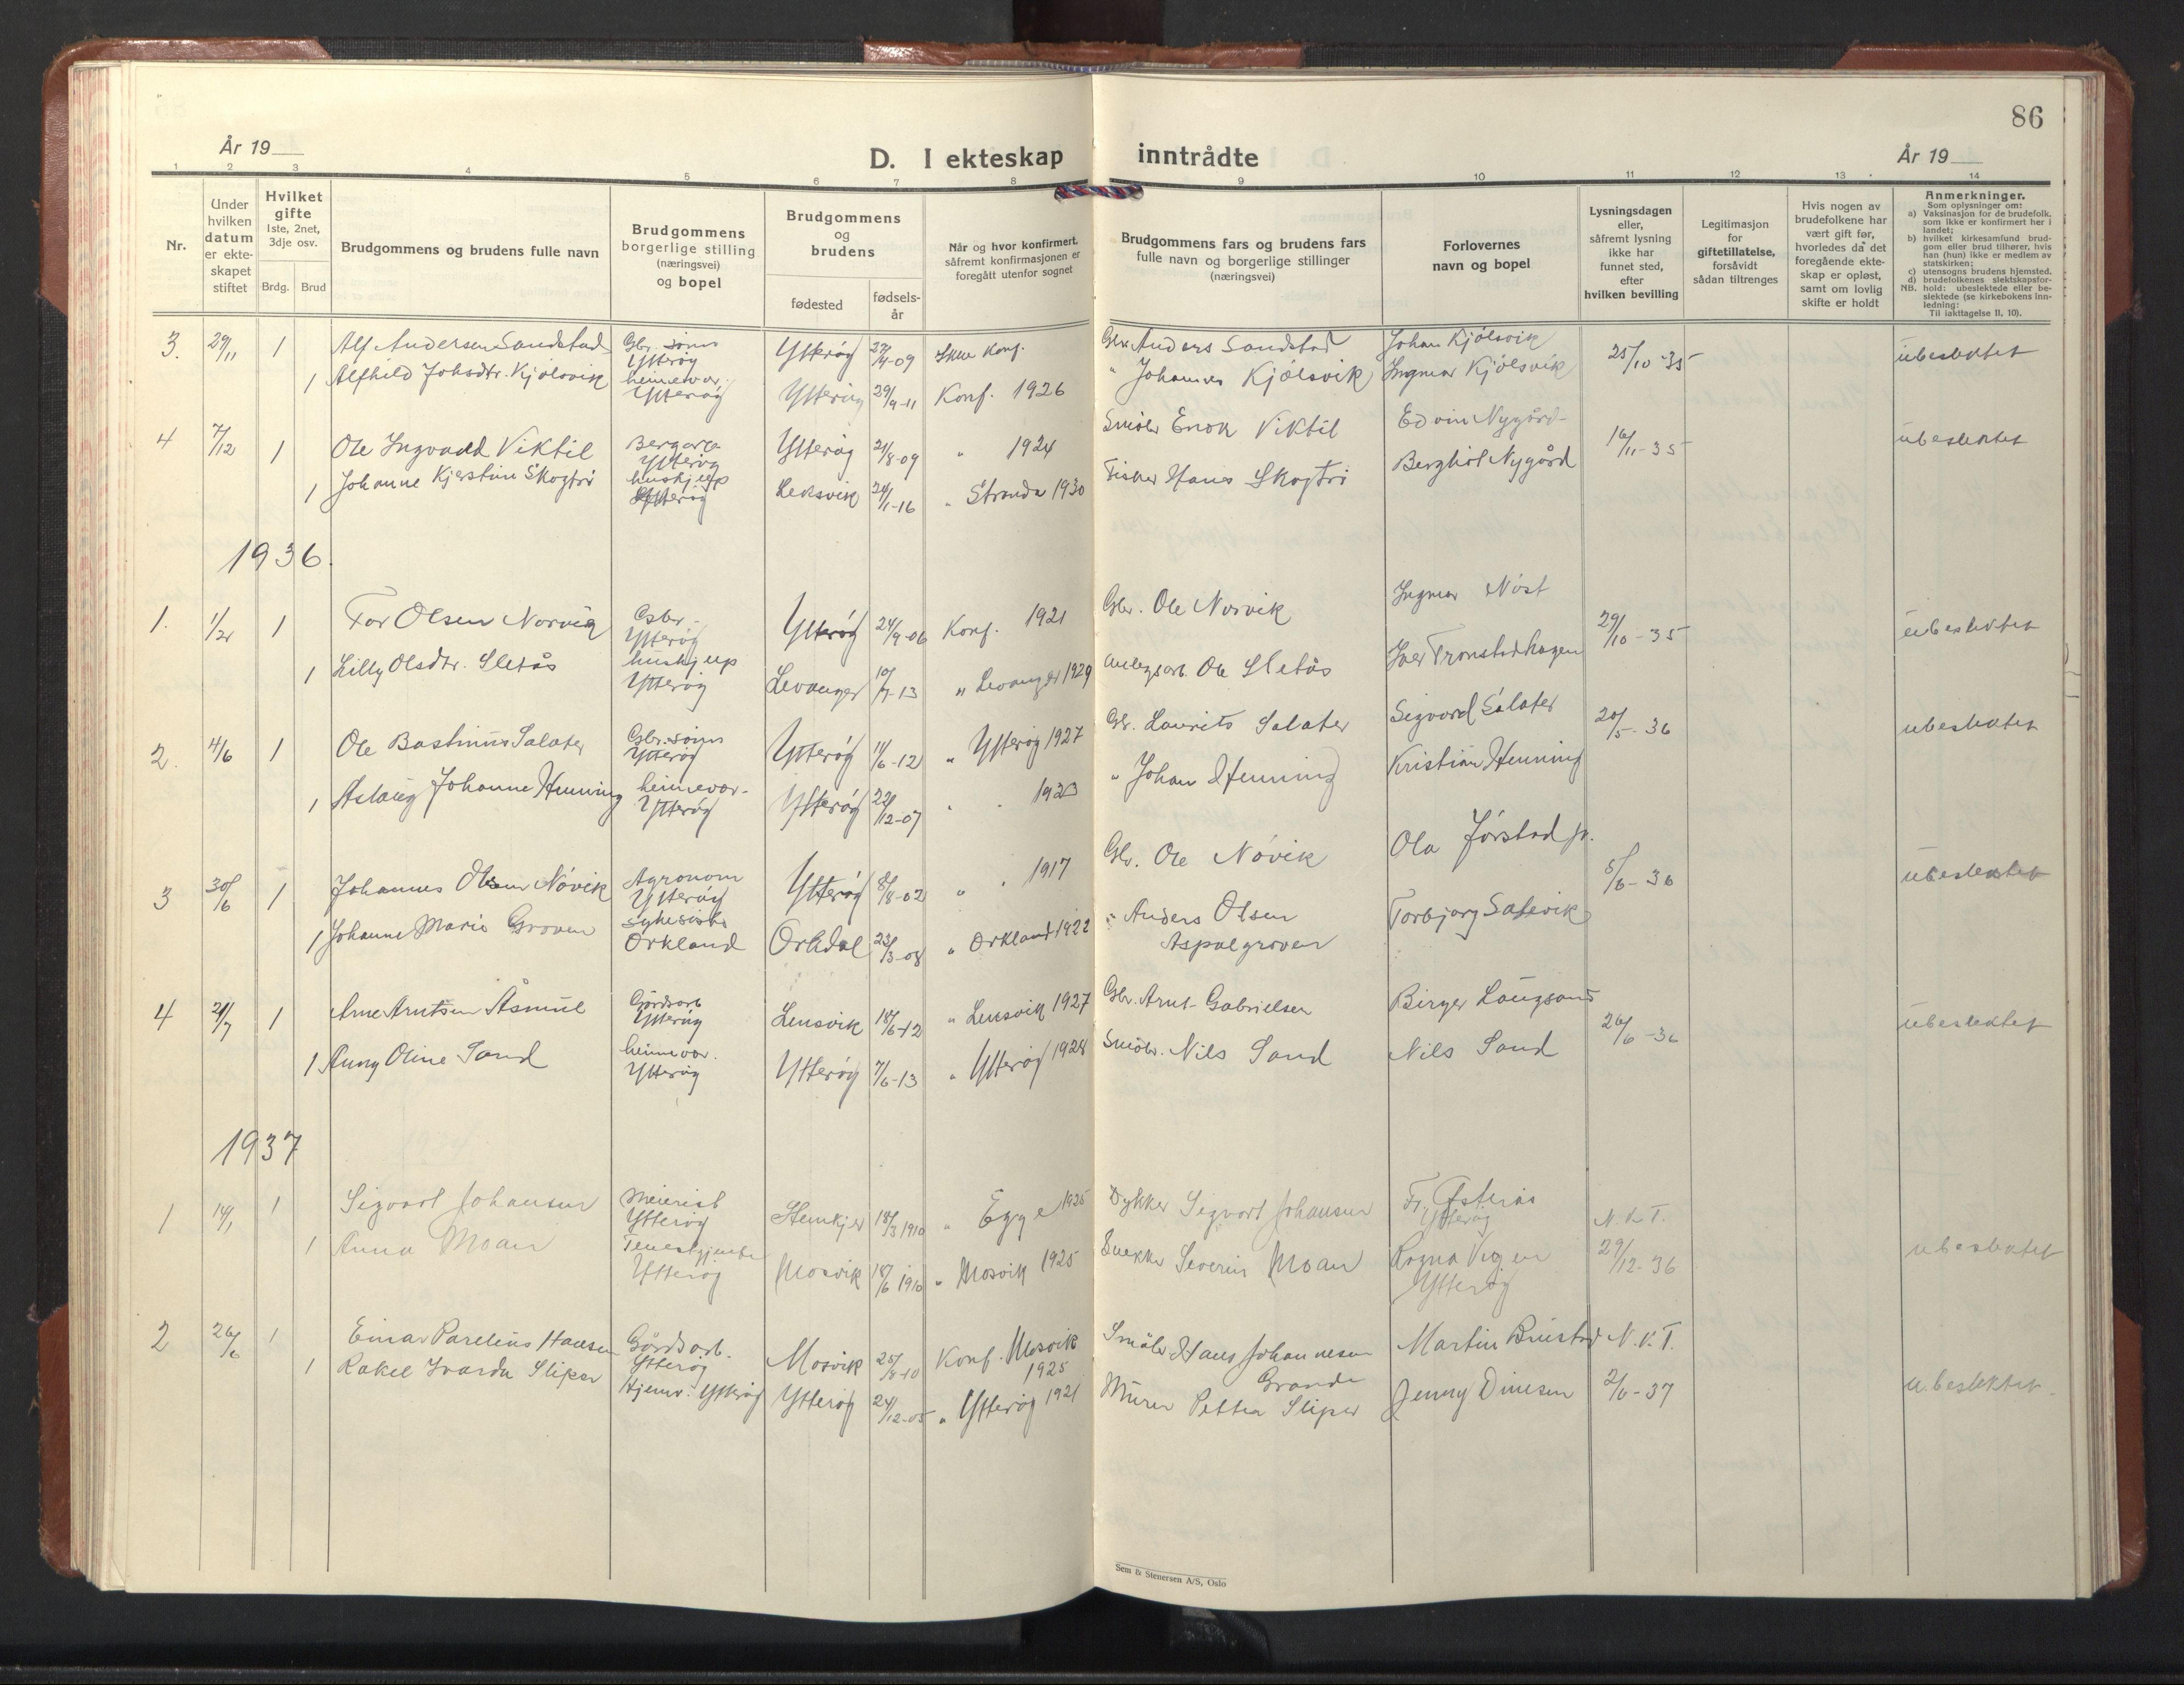 86
År 19
D. I ekteskap inntrådte
År 19
1 2 3 4 5 6 7 8 9 10 11 12 13 14
Nr.
Under hvilken datum er ekteskapet stiftet
Hvilket gifte 1ste, 2net, 3dje osv.
Brdg. Brud
Brudgommens og brudens fulle navn
Brudgommens borgerlige stilling (næringsvei) og bopel
Brudgommens og brudens
fødested
fødselsår
Når og hvor konfirmert, såfremt konfirmasjonen er foregått utenfor sognet
Brudgommens fars og brudens fars fulle navn og borgerlige stillinger (næringsvei)
Forlovernes navn og bopel
Lysningsdagen eller, såfremt lysning ikke har funnet sted, efter hvilken bevilling
Legitimasjon for giftetillatelse, forsåvidt sådan tiltrenges
Hvis nogen av brudefolkene har vært gift før, hvorledes da det foregående ekteskap er opløst, samt om lovlig skifte er holdt
Anmerkninger.
Som oplysninger om:
a) Vaksinasjon for de brudefolk, som ikke er konfirmert her i landet;
b) hvilket kirkesamfund brudgom eller brud tilhører, hvis han (hun) ikke er medlem av statskirken;
c) utensogns brudens hjemsted,
d) brudefolkenes slektskapsforhold: ubeslektede eller beslektede (se kirkebokens innledning:
NB. Til iakttagelse II, 10).
3. 29/11 1 Alf Andersen Sandstad Gbr. sønn Ytterøy 27/4-09 Skee Konf. Gbr. Anders Sandstad Johan Kjølsvik 25/10-35 ubeslektet
1 Alfhild Johsdtr. Kjølsvik heimevær. Ytterøy Ytterøy 29/9-11 Konf. 1926 " Johannes Kjølsvik Ingmar Kjølsvik
4 7/12 1 Ole Ingvald Viktil Bergarb. Ytterøy Ytterøy 21/8-09 " 1924 Småbr Enok Viktil Edvin Nygård 16/11-35 ubeslektet
1 Johanne Kjerstine Skogtrø hushjelp Ytterøy Leksvik 24/1-16 " Stranda 1930 Fisker Hans Skogtrø Berghol Nygård
1936.
1. 1/2 1 Tor Olsen Norvik Gbr. Ytterøy Ytterøy 24/9-06 Konf. 1921 Gbr. Ole Norvik Ingmar Nøst 29/10-35 ubeslektet
1 Lilly Olsdtr. Sletås hushjelp Ytterøy Levanger 10/7-13 " Levanger 1929 Anlegsarb. Ole Sletås Iver Tronstadhagen
2. 4/6 1 Ole Bastinus Salater Gbr. sønn Ytterøy Ytterøy 11/6-12 " Ytterøy 1927 Gbr. Laurits Salater Sigvard Salater 20/5-36 ubeslektet
1 Aslaug Johanne Henning heimevær. Ytterøy Ytterøy 22/12-07 " " 1923 " Johan Henning Kristian Henning
3 30/6 1 Johannes Olsen Nøvik Agronom Ytterøy Ytterøy 8/8-02 " " 1917 Gbr. Ole Nøvik Ola Jørstad jr. 5/6-36 ubeslektet
1 Johanne Marie Groven Orkland Orkdal 23/3-08 " Orkland 1922 " Anders Olsen Torbjørg Salsvik
Aspalgroven
4 21/7 1 Arne Arntsen Åsmul Gårdsarb Ytterøy Lensvik 18/6-12 " Lensvik 1927 Gbr. Arnt Gabrielsen Birger Laugsand 26/6-36 ubeslektet
1 Anny Oline Sand heimevær. Ytterøy Ytterøy 7/6-13 " Ytterøy 1928 Småbr. Nils Sand Nils Sand
1937
1 14/1 1 Sigvart Johansen Meierist Ytterøy Steinkjer 18/3 1910 " Egge 1925 Dykker Sigvart Johansen Fr. Asterås Ytterøy N.K.T.
1 Anna Moan Ytterøy Mosvik 18/6 1910 " Mosvik 1925 Snekker Severin Moan Ragna Vigen Ytterøy 29/12-36 ubeslektet
2 26/6 1 Einar Parelius Hansen Gårdsarb. Ytterøy Mosvik 25/8-10 Konf. Mosvik 1925 Småbr Hans Johannesen Grande Martin Brustad N.K.T.
1 Rakel Ivarda Sliper Hjemv. Ytterøy Ytterøy 24/12-05 " Ytterøy 1921 Murer Petter Sliper Jenny Dinesen 2/6-37 ubeslektet
Sem & Stenersen A/S, Oslo